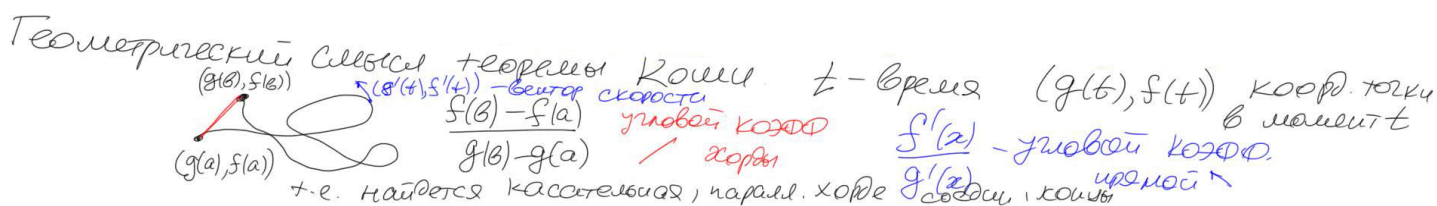 Геометрический смысл теоремы Коши. t - время (g(t), f(t)) коорд. точки
в момент t
(g(b), f(b))
(g'(t), f'(t)) - вектор скорости
(f(b) - f(a)) / (g(b) - g(a)) угловой коэфф
хорды
f'(x) / g'(x) - угловой коэфф.
прямой
(g(a), f(a))
т.е. найдется касательная, паралл. хорде соедин. концы